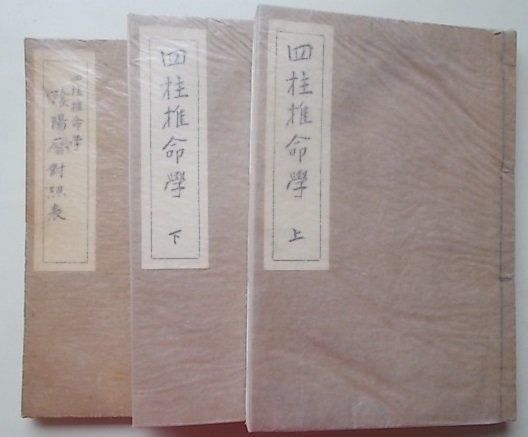 四柱推命學
上
四柱推命學
下
四柱推命学
陰陽暦対照表